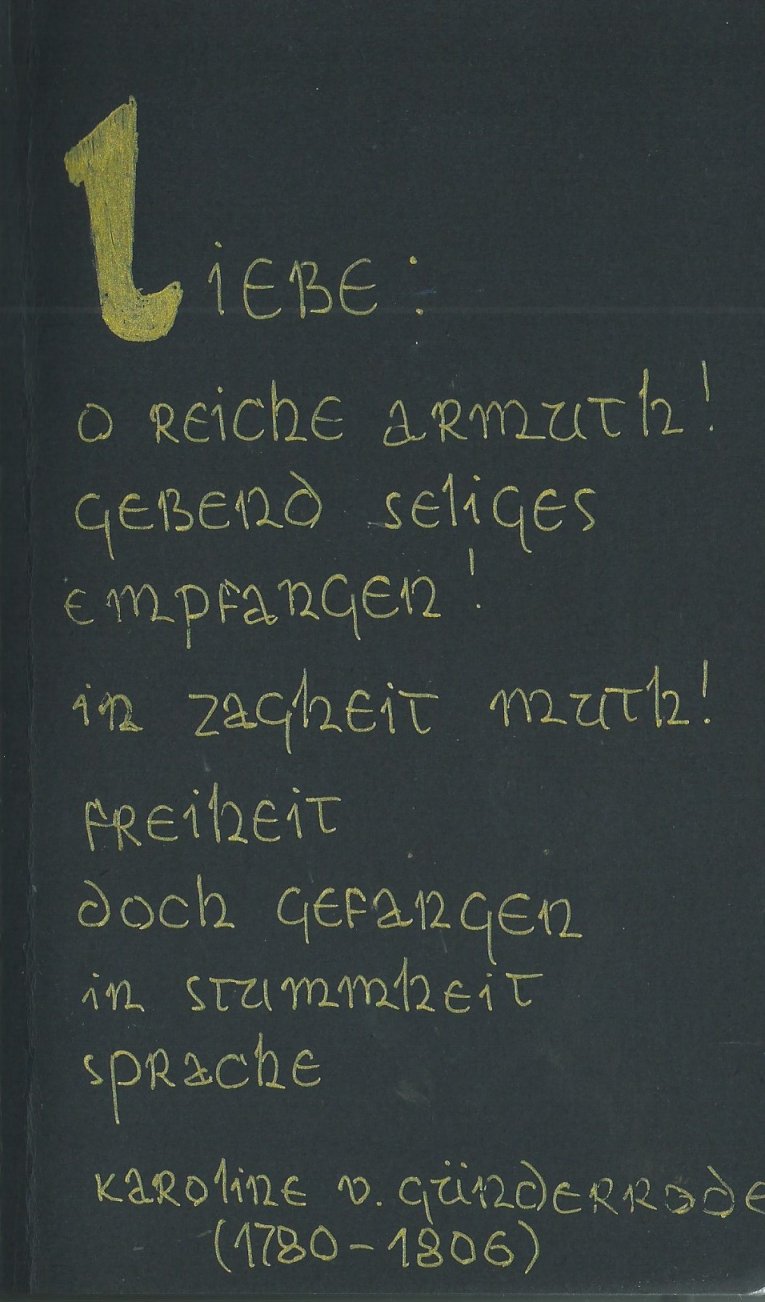 Liebe:
o reiche armuth!
gebend seliges
empfangen!
in zagheit muth!
freiheit
doch gefangen
in stummheit
sprache
karoline v. günderrode
(1780-1806)